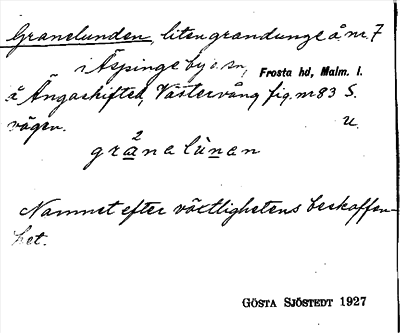 Granelunden, liten grandunge å nr. 7
i Äspinge by o. sn, Frosta hd, Malm. l.
å Ängaskiftet, Västervång fig. nr 83 S.
vägen. u.
2
granalùnan
Namnet efter växtlighetens beskaffen-
het.
GÖSTA SJÖSTEDT 1927